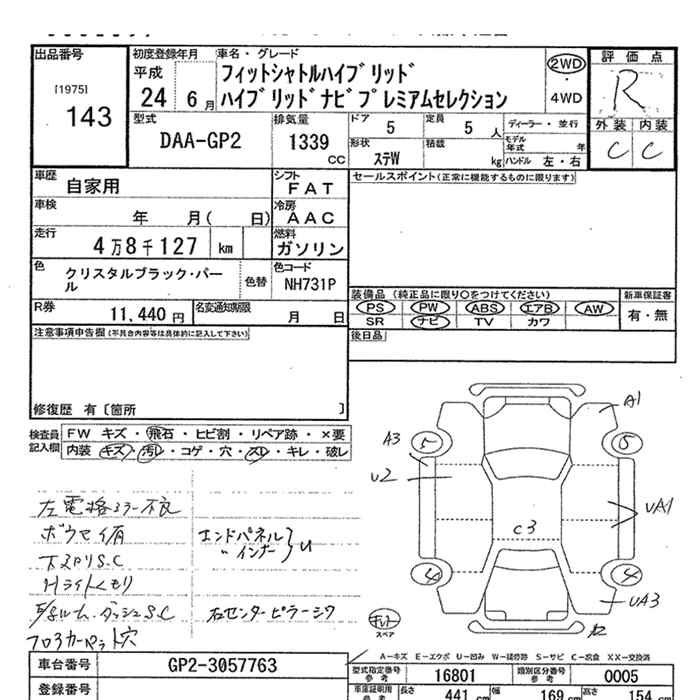 出品番号 初度登録年月 車名・グレード 評価点
[1975] 平成 フィットシャトルハイブリッド 2WD R
143 24 6月 ハイブリッドナビプレミアムセレクション 4WD
型式 排気量 ドア 5 定員 5人 ディーラー・並行 外装 内装
DAA-GP2 1339 cc 形状 ステW 積載 kg モデル年式 年 ハンドル 左・右 C C
車歴 自家用 シフト FAT セールスポイント(正常に機能するものに限ります)
車検 年 月( 日) 冷房 AAC
走行 4万8千127 km 燃料 ガソリン
色 クリスタルブラック・パール 色替 色コード NH731P
装備品 (純正品に限り○をつけてください) 新車保証書
R券 11,440円 名変通知期限 月 日 PS PW ABS エアB AW 有・無
SR ナビ TV カワ
注意事項申告欄(不具合内容等は具体的に記入して下さい) 後日品
修復歴 有〔箇所 〕
検査員 FW キズ・飛石・ヒビ割・リペア跡・×要
記入欄 内装 キズ・汚れ・コゲ・穴・スレ・キレ・破レ
A1
A3 5 5
U2 UA1
C3
4 4
UA3
スペア
左電格ミラー不良
ボウセイ有 エンドパネル
〃 インナー } U
下スリS.C
Hライトくもり
ルーム、ダッシュS.C 右センターピラーシワ
フロアカーペット穴
A-キズ E-エクボ U-凹み W-補修跡 S-サビ C-腐食 XX-交換済
車台番号 GP2-3057763 型式指定番号 参考 16801 類別区分番号 参考 0005
登録番号 車庫証明用 参考 長さ 441 cm 幅 169 cm 高さ 154 cm